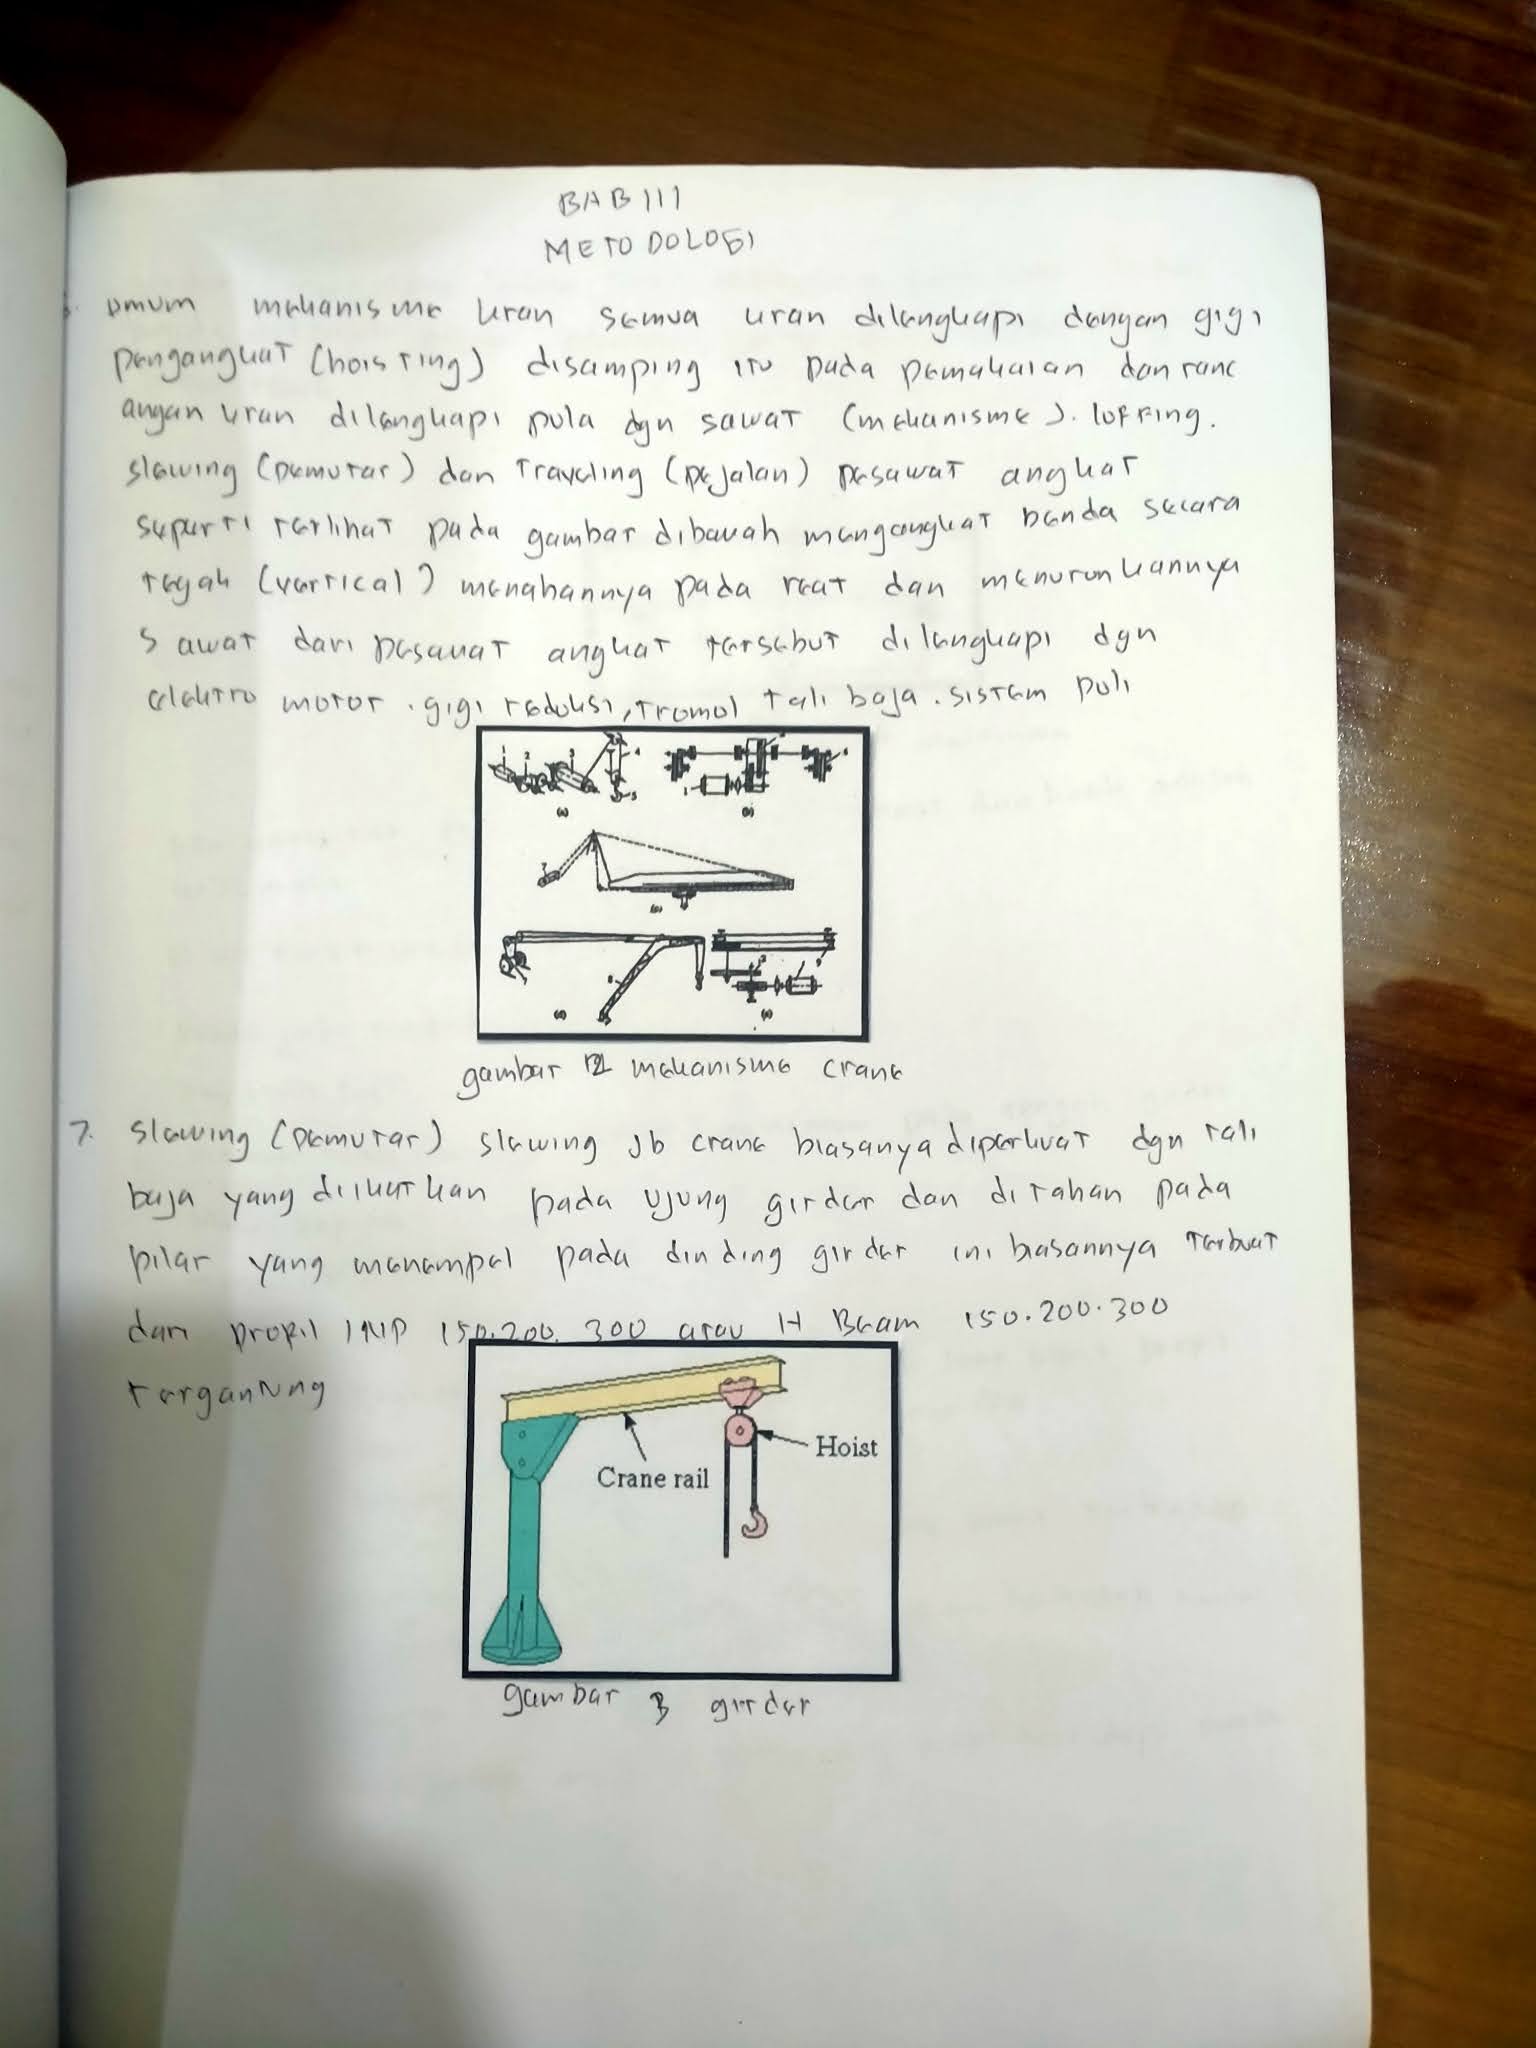 BAB III
METODOLOGI
umum mekanisme kran semua kran dilengkapi dengan gigi
pengangkat (hoisting) disamping itu pada pemakaian dan ranc
angan kran dilengkapi pula dgn sawat (mekanisme). luffing.
slewing (pemutar) dan Traveling (pejalan) pesawat angkat
seperti terlihat pada gambar dibawah mengangkat benda secara
tegak (vertical) menahannya pada saat dan menurunkannya
sawat dari pesawat angkat tersebut dilengkapi dgn
elektro motor. gigi reduksi, tromol tali baja. sistem puli
1 2 3 4
5
1
(a) (b)
7
(c)
8
2
9
(d) (e)
gambar 2 mekanisme crane
7. Slewing (pemutar) slewing Jb crane biasanya diperkuat dgn tali
baja yang diikatkan pada ujung girder dan ditahan pada
pilar yang menempel pada dinding girder ini biasannya terbuat
dari propil INP 150.200.300 atau H Beam 150.200.300
tergantung
Hoist
Crane rail
gambar 3 girder